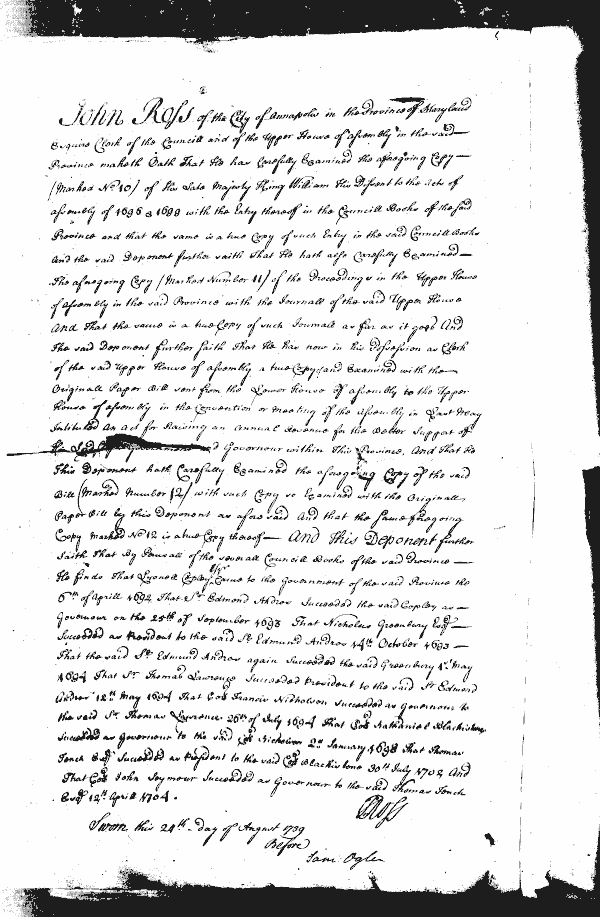 John Ross of the City of Annapolis in the Province of Maryland
Esquire Clerk of the Councill and of the Upper House of assembly in the said
Province maketh Oath That He has Carefully Examined the aforegoing Copy
(Marked No 10) of His Late Majesty King William His Dissent to the Acts of
assembly of 1696 & 1699 with the Entry thereof in the Councill Books of the said
Province and that the same is a true Copy of such Entry in the said Councill Books
And the said Deponent further saith That He hath also Carefully Examined
the aforegoing Copy (Marked Number 11) of the Proceedings in the Upper House
of assembly in the said Province with the Journall of the said Upper House
And That the same is a true Copy of such Journall as far as it goes And
the said Deponent further saith That He has now in his Possession as Clerk
of the said Upper House of assembly a true Copy and Examined with the
Originall Paper Bill sent from the Lower House of assembly to the Upper
House of assembly in the Convention or meeting of the Assembly in Last May
Intituled An act for Raising an annual Revenue for the Better Support of
Governour within This Province, And That He
This Deponent hath Carefully Examined the aforegoing Copy of the said
Bill (Marked Number 12) with such Copy so Examined with the Originall
Paper Bill by this Deponent as aforesaid And that the same foregoing
Copy marked No 12 is a true Copy thereof And This Deponent further
saith That By Perusall of the severall Councill Books of the said Province
He finds That Lyonell Copley Esqr Came to the Government of the said Province the
6th of Aprill 1692 That Sr Edmond Andros Succeeded the said Copley as
Governour on the 25th of September 1693 That Nicholas Greenbury Esqr
Succeeded as President to the said Sr Edmund Andros 14th October 1693
That the said Sr Edmund Andros again Succeeded the said Greenbury May
1694 That Sr Thomas Lawrence Succeeded President to the said Sr Edmond
Andros 12th May 1694 That Col Francis Nicholson Succeeded as Governour to
the said Sr Thomas Lawrence 26th of July 1694 That Col Nathaniel Blackistone
Succeeded as Governour to the said Col Nicholson 2d January 1698 That Thomas
Tench Esqr Succeeded as President to the said Col Blackistone 30th July 1702 And
That Col John Seymour Succeeded as Governour to the said Thomas Tench
Esqr 12th Aprill 1704.
JRoss
Sworn this 24th day of August 1739
Before
Sam Ogle